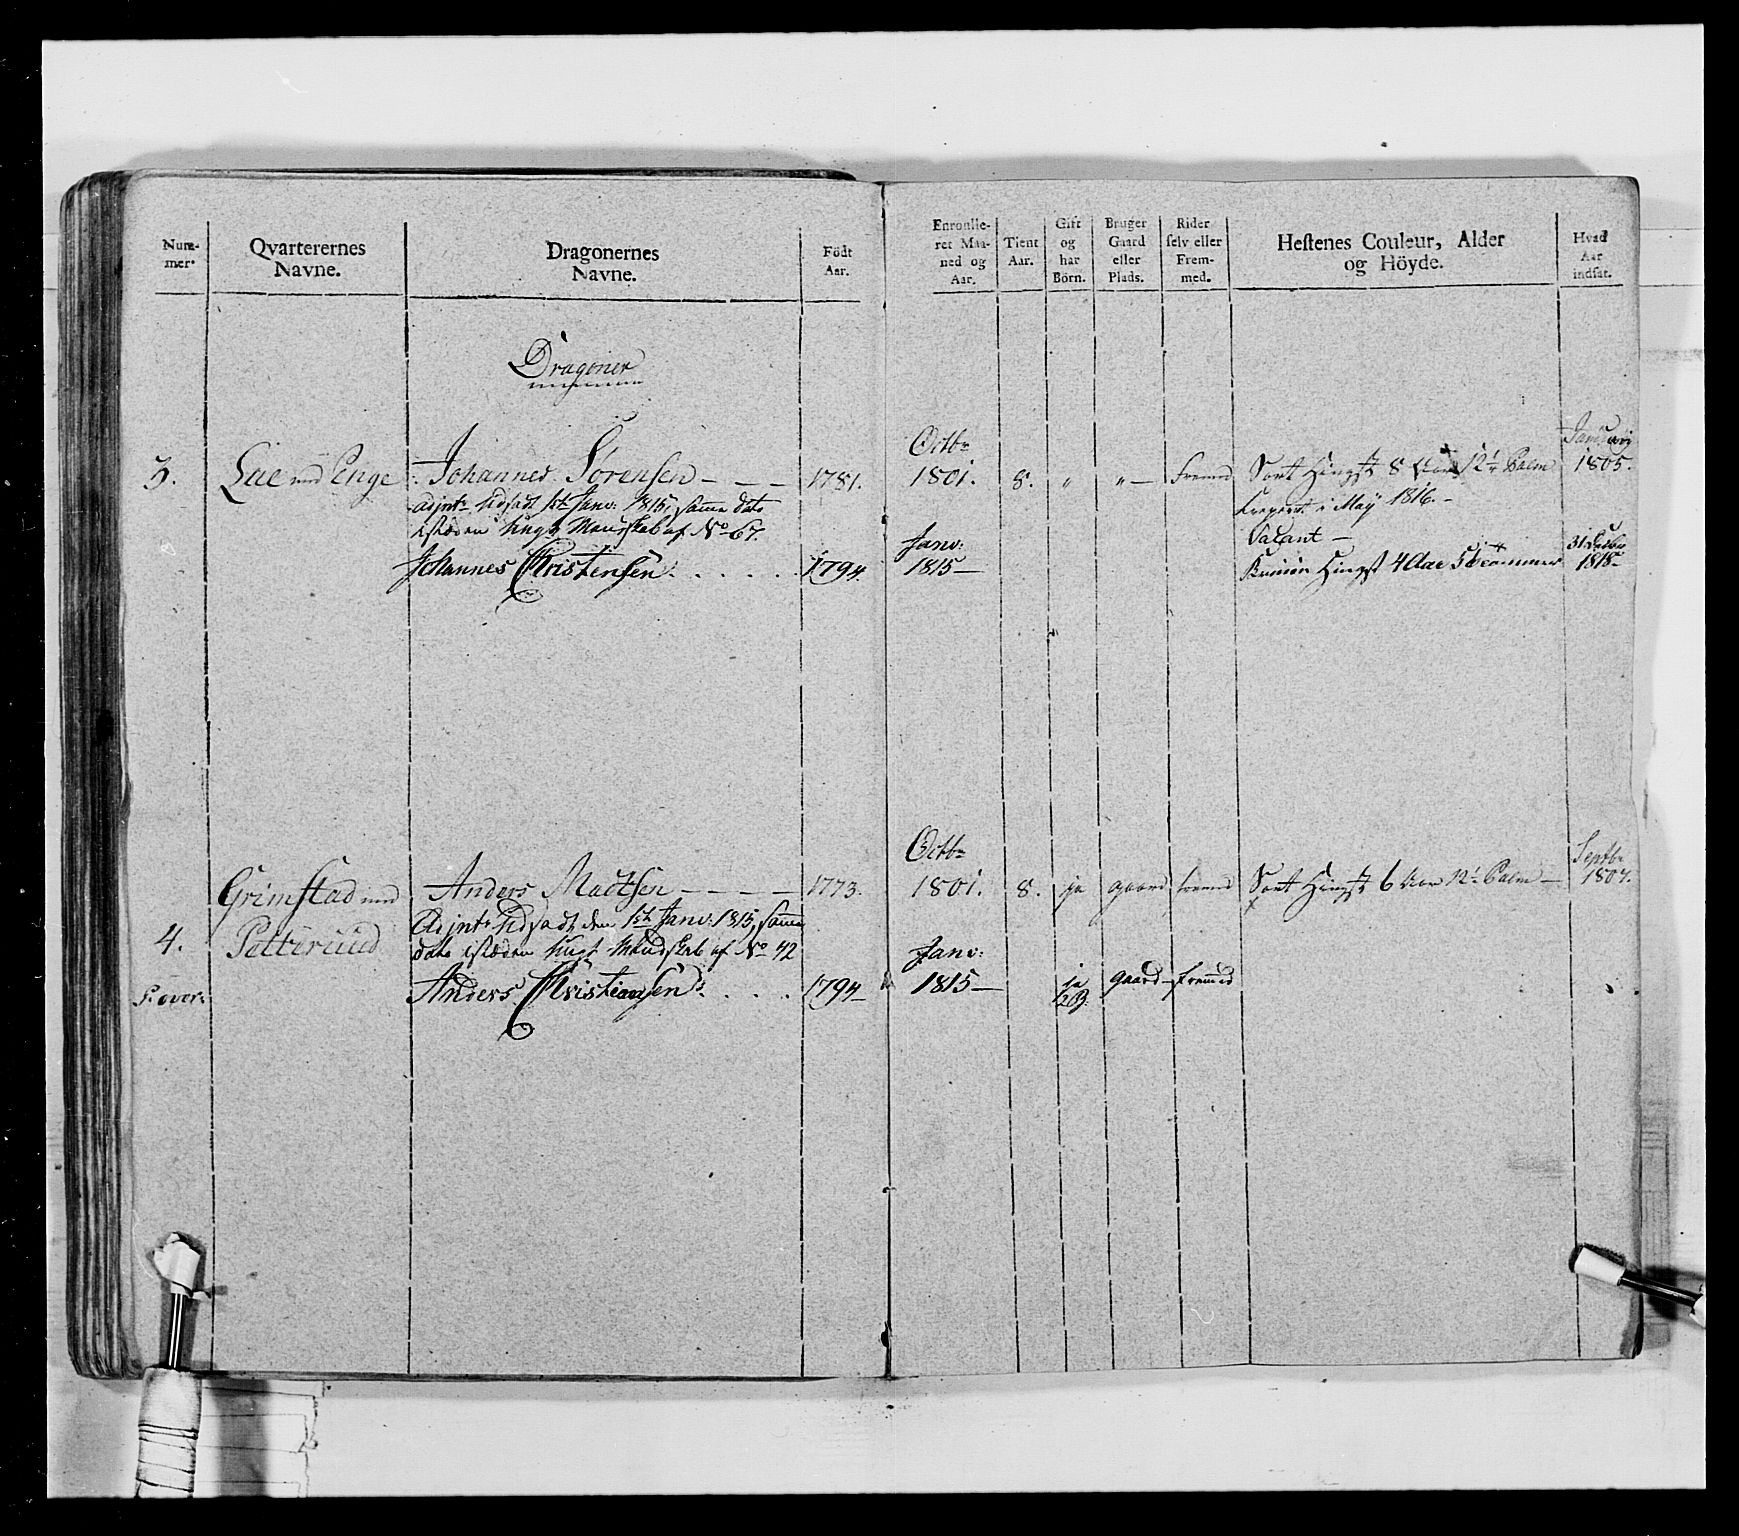 Num-
mer.
Qvarterernes
Navne.
Dragonernes
Navne.
Födt
Aar.
Enroulle-
ret Maa-
ned og
Aar.
Tient
Aar.
Gift
og
har
Börn.
Bruger
Gaard
eller
Plads.
Rider
selv eller
Frem-
med.
Hestenes Couleur, Alder
og Höyde.
Hvad
Aar
indsat.
Dragoner
3. Lae med Enge Johannes Sørensen - - - 1781. Octbr 1801. 8. " " - fremd Sort Hingst 8 Aar 12 1/2 Palm Januari 1805.
adjnt udsadt 1ste Janv: 1815, samme dato
isteden lagt Mandskab af No 67.
Creperet i May 1816. -
Vacant -
Johannes Christensen . . . . . 1794. Janv: 1815 - Hingst 4 Aar 5 31 1818
4. Grimstad med Anders Madtsen - - - - 1773. Octbr 1801. 8. ja gaard fremd Sort Hingst 6 Aar 12 1/2 Palm - Septbr 1807.
Petterud
Adjnt udsadt den 1ste Janv: 1815, samme
dato isteden lagt Mandskab af No 42
Anders Christiansen . . . . 1794 - Janv: 1815 - ja 2 B. gaard - fremmed